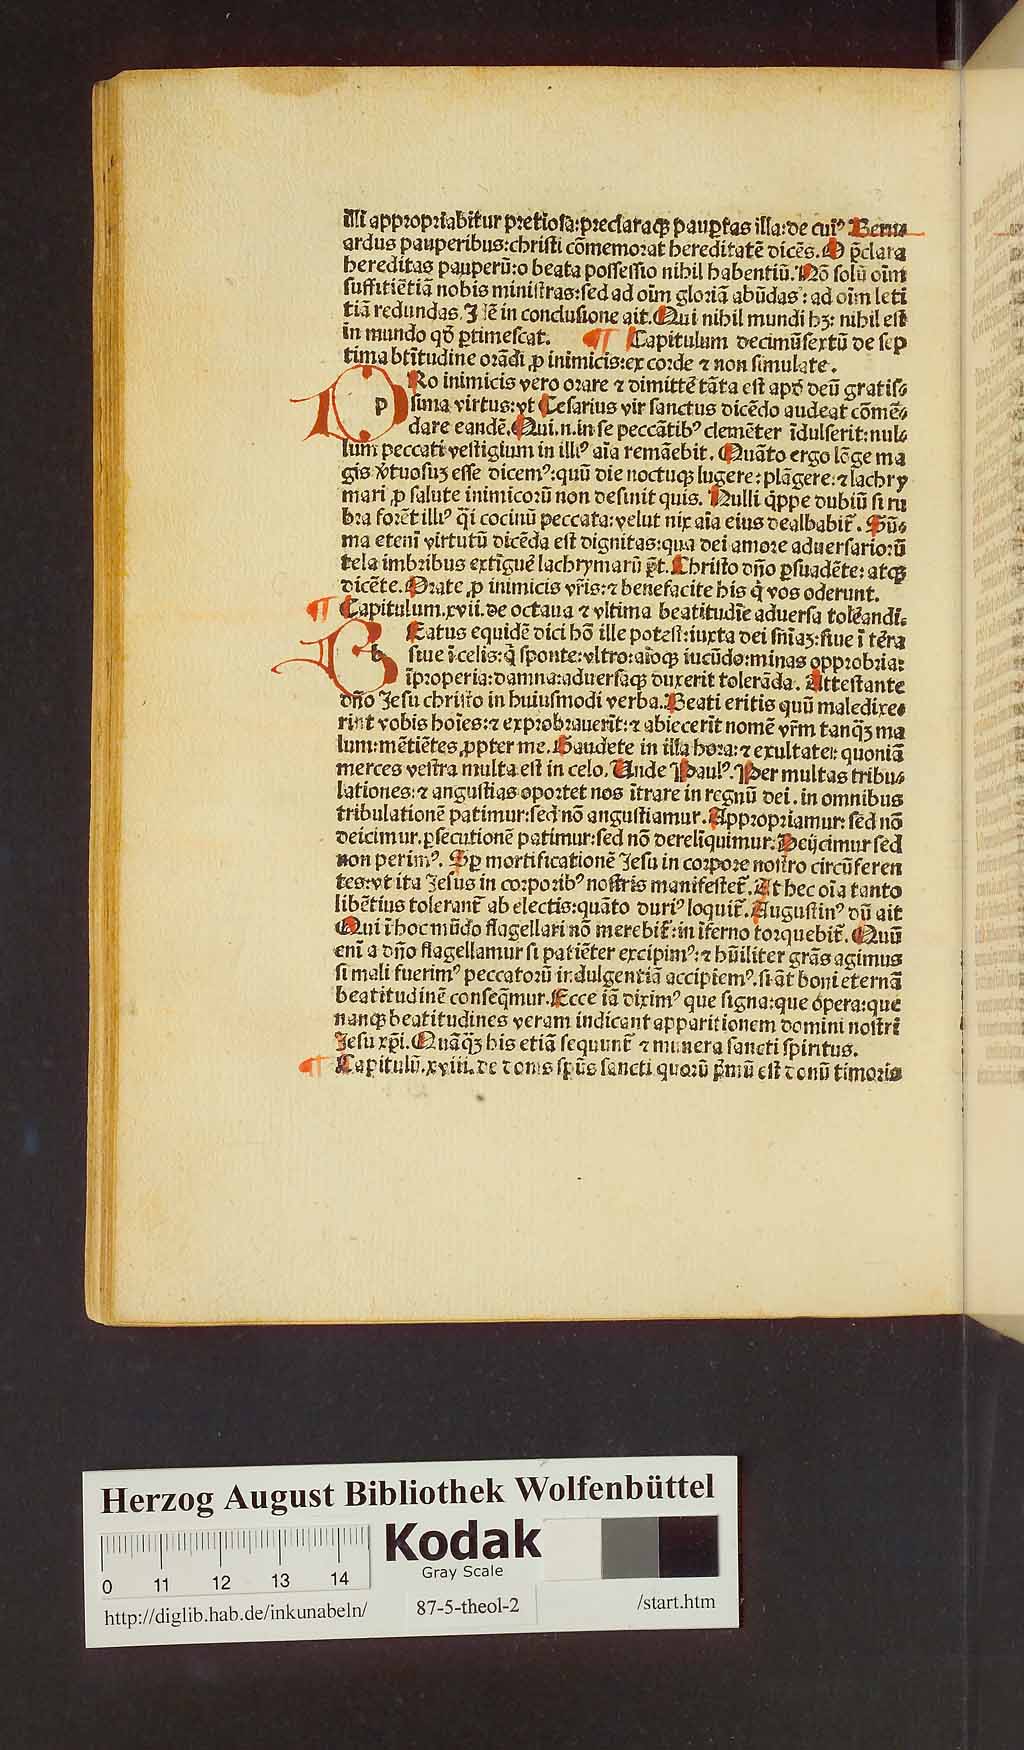 illi appropriabitur pretiosa:preclaraqꝫ paup̱tas illa:de cuiꝰ Bern⸗
ardus pauperibus:christi cōmemorat hereditatē dicēs. O p̄clara
hereditas pauperū:o beata possessio nihil habentiū. Nō solū oīm
suffitiētiā nobis ministras:sed ad oīm gloriā abūdas: ad oīm leti
tiā redundas. Itē in conclusione ait. Qui nihil mundi hꝫ: nihil est
in mundo qď ꝑtimescat. ¶ Capitulum decimūsextū de sep
tima btītudine orādi ꝓ inimicis:ex corde ⁊ non simulate.
PRo inimicis vero orare ⁊ dimittē tāta est apď deū gratis⸗
sima virtus:vt Cesarius vir sanctus dicēdo audeat cōmē⸗
dare eandē. Qui.n.in se peccātibꝰ clemēter īdulserit:nul⸗
lum peccati vestigium in illiꝰ aīa remāebit. Quāto ergo lōge ma
gis v̓tuosuꝫ esse dicemꝰ:quū die noctuqꝫ lugere:plāgere:⁊ lachry
mari ꝓ salute inimicorū non desinit quis. Nulli q̄ppe dubiū si ru
bra forēt illiꝰ q̄i cocinū peccata:velut nix aīa eius dealbabit̄. Sū⸗
ma etenī virtutū dicēda est dignitas:qua dei amore aduersariorū
tela imbribus extīguē lachrymarū p̄t. Christo dño ꝑsuadēte: atqꝫ
dicēte. Orate ꝓ inimicis vr̄is:⁊ benefacite his q̄ vos oderunt.
¶ Capitulum.xvii.de octaua ⁊ vltima beatitudīe aduersa tolerandi.
BEatus equidē dici hō ille potest:iuxta dei sn̄iaꝫ:siue ī terra
siue ī celis:q̄ sponte:vltro:aīoqꝫ iucūdo:minas opprobria:
īproperia:damna:aduersaqꝫ duxerit tolerāda. Attestante
dño Jesu christo in huiusmodi verba. Beati eritis quū maledixe⸗
rint vobis hoīes:⁊ exprobrauerīt:⁊ abiecerīt nomē vr̄m tanqꝫ̄ ma
lum:mētiētes ꝓpter me. Gaudete in illa hora:⁊ exultate: quoniā
merces vestra multa est in celo. Unde Paulꝰ. Per multas tribu⸗
lationes:⁊ angustias oportet nos ītrare in regnū dei. in omnibus
tribulationē patimur:sed nō angustiamur. Appropriamur: sed nō
deicimur.ꝑsecutionē patimur:sed nō derelīquimur. Deijcimur sed
non perimꝰ. Sꝑ mortificationē Jesu in corpore nostro circūferen
tes:vt ita Jesus in corporibꝰ nostris manifestet̄. At hec oīa tanto
libētius tolerant̄ ab electis:quāto duriꝰ loquit̄. Augustinꝰ dū ait
Qui ī hoc mūdo flagellari nō merebit̄:in īferno torquebit̄. Quū
enī a dño flagellamur si patiēter excipimꝰ:⁊ hūiliter grās agimus
si mali fuerimꝰ peccatorū indulgentiā accipiemꝰ.si āt boni eternā
beatitudinē conseq̄mur. Ecce iā diximꝰ que signa:que opera:que
nanqꝫ beatitudines veram indicant apparitionem domini nostri
Jesu xp̄i. Quāqꝫ̄ his etiā sequunt̄ ⁊ munera sancti spiritus.
¶ Capitulū.xviii.de donis sp̄us sancti quorū p̄mū est donū timoris
Herzog August Bibliothek Wolfenbüttel
Kodak
Gray Scale
0 11 12 13 14
http://diglib.hab.de/inkunabeln/ 87-5-theol-2 /start.htm